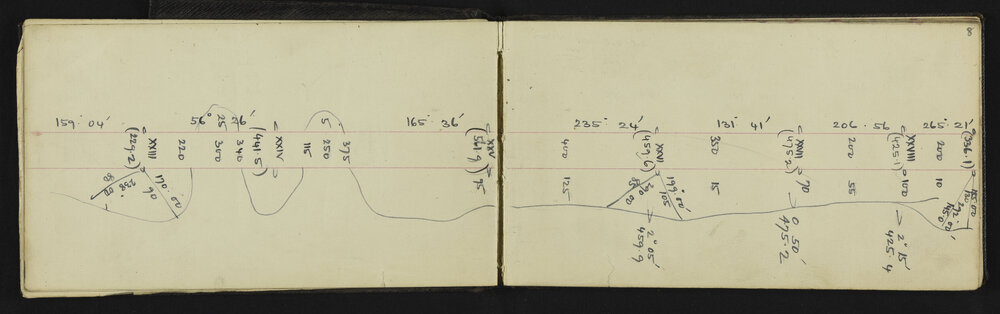 8
159° 04′
56° 26′
165° 36′
235° 24′
131° 41′
206° 56
265° 21′
XXIII
(229.2)
220
25
300
340
XXIV
(441.5)
115
5
250
375
XXV
(561.9)
75
400
125
XXVI
(459.6)
350
15
XXVII
(475.2)
70
200
55
XXVIII
(425.1)
100
200
10
(336.1)
238°
90
80
290
85
199°
105
2° 05′
459.9
0 50′
475.2
2° 15′
425.4